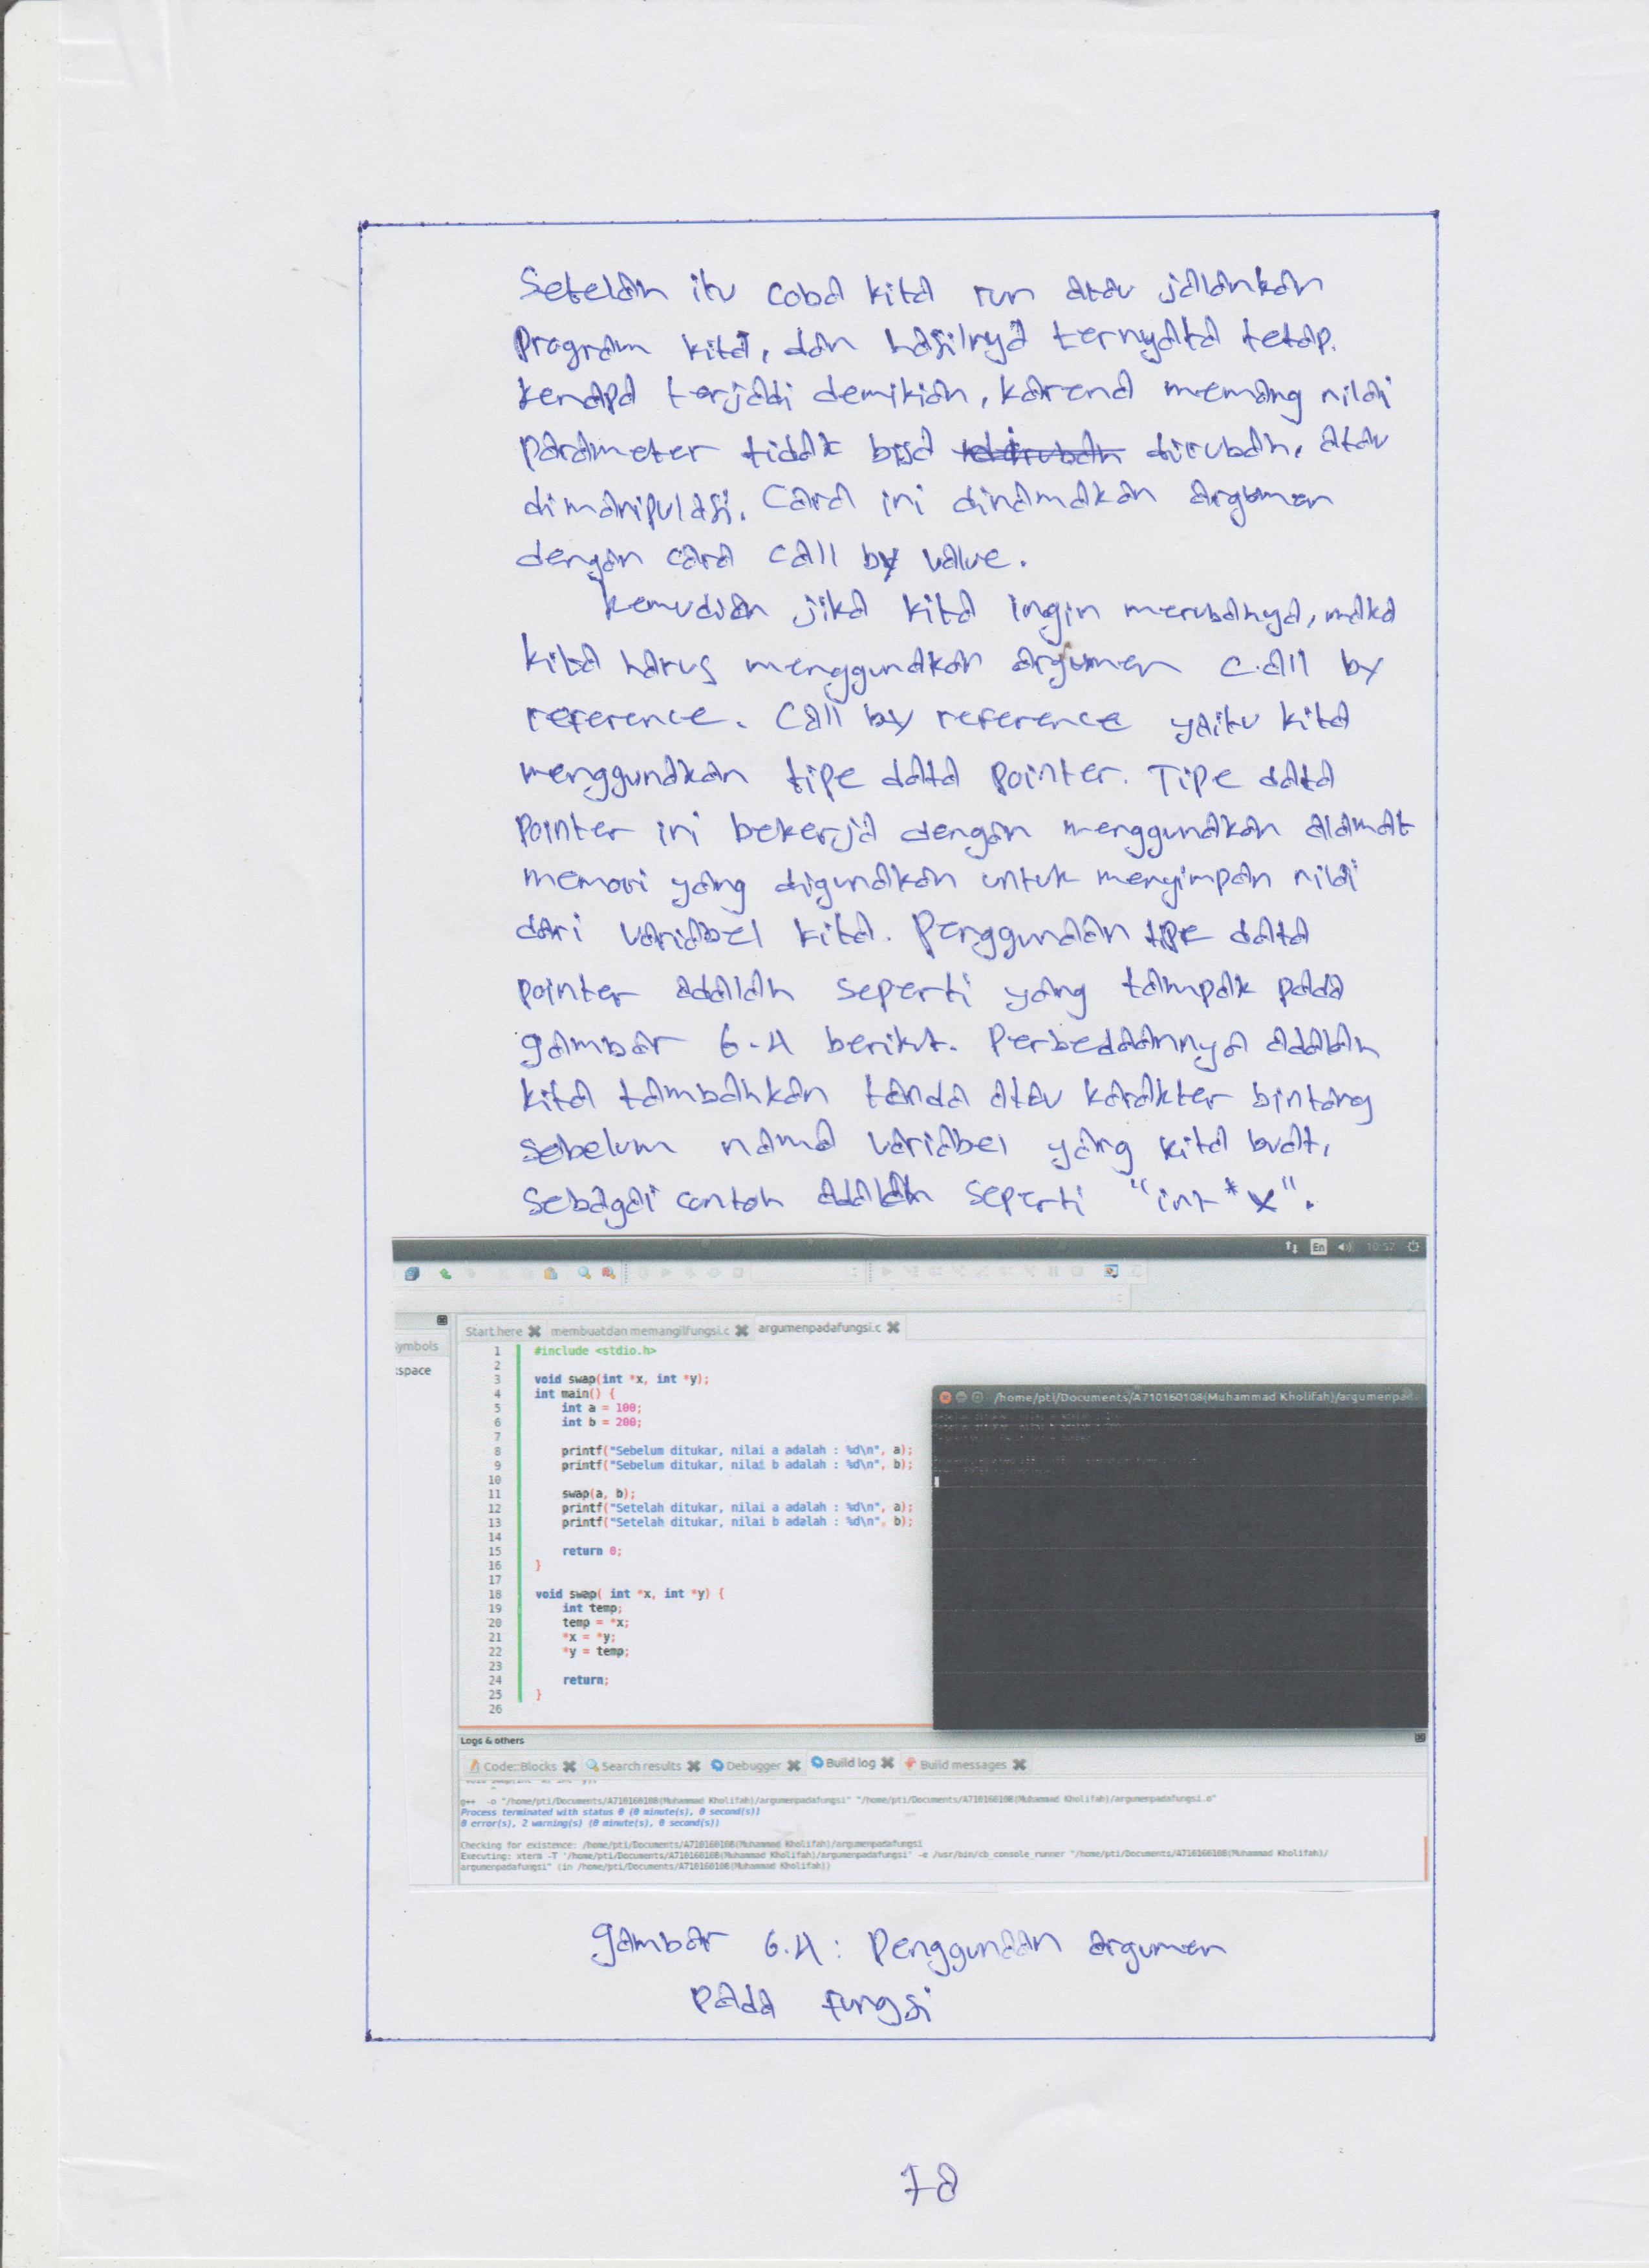 Setelah itu coba kita run atau jalankan
Program kita, dan hasilnya ternyata tetap.
kenapa terjadi demikian, karena memang nilai
parameter tidak bisa dirubah, atau
dimanipulasi. Cara ini dinamakan argumen
dengan cara call by value.
kemudian jika kita ingin merubahnya, maka
kita harus menggunakan argumen call by
reference. Call by reference yaitu kita
menggunakan tipe data pointer. Tipe data
Pointer ini bekerja dengan menggunakan alamat
memori yang digunakan untuk menyimpan nilai
dari variabel kita. Penggunaan tipe data
pointer adalah seperti yang tampak pada
gambar 6.4 berikut. Perbedaannya adalah
kita tambahkan tanda atau karakter bintang
sebelum nama variabel yang kita buat,
sebagai contoh adalah seperti "int *x".
En 10:52
Start here membuatdan memangilfungsi.c argumenpadafungsi.c
ymbols
kspace
1 #include <stdio.h>
2
3 void swap(int *x, int *y);
4 int main() {
5 int a = 100;
6 int b = 200;
7
8 printf("Sebelum ditukar, nilai a adalah : %d\n", a);
9 printf("Sebelum ditukar, nilai b adalah : %d\n", b);
10
11 swap(a, b);
12 printf("Setelah ditukar, nilai a adalah : %d\n", a);
13 printf("Setelah ditukar, nilai b adalah : %d\n", b);
14
15 return 0;
16 }
17
18 void swap( int *x, int *y) {
19 int temp;
20 temp = *x;
21 *x = *y;
22 *y = temp;
23
24 return;
25 }
26
/home/pti/Documents/A710160108(Muhammad Kholifah)/argumenpad
Logs & others
Code::Blocks Search results Debugger Build log Build messages
g++ -o "/home/pti/Documents/A710160108(Muhammad Kholifah)/argumenpadafungsi" "/home/pti/Documents/A710160108(Muhammad Kholifah)/argumenpadafungsi.o"
Process terminated with status 0 (0 minute(s), 0 second(s))
0 error(s), 2 warning(s) (0 minute(s), 0 second(s))
Checking for existence: /home/pti/Documents/A710160108(Muhammad Kholifah)/argumenpadafungsi
Executing: xterm -T '/home/pti/Documents/A710160108(Muhammad Kholifah)/argumenpadafungsi' -e /usr/bin/cb_console_runner "/home/pti/Documents/A710160108(Muhammad Kholifah)/
argumenpadafungsi" (in /home/pti/Documents/A710160108(Muhammad Kholifah))
gambar 6.4 : Penggunaan argumen
pada fungsi
78